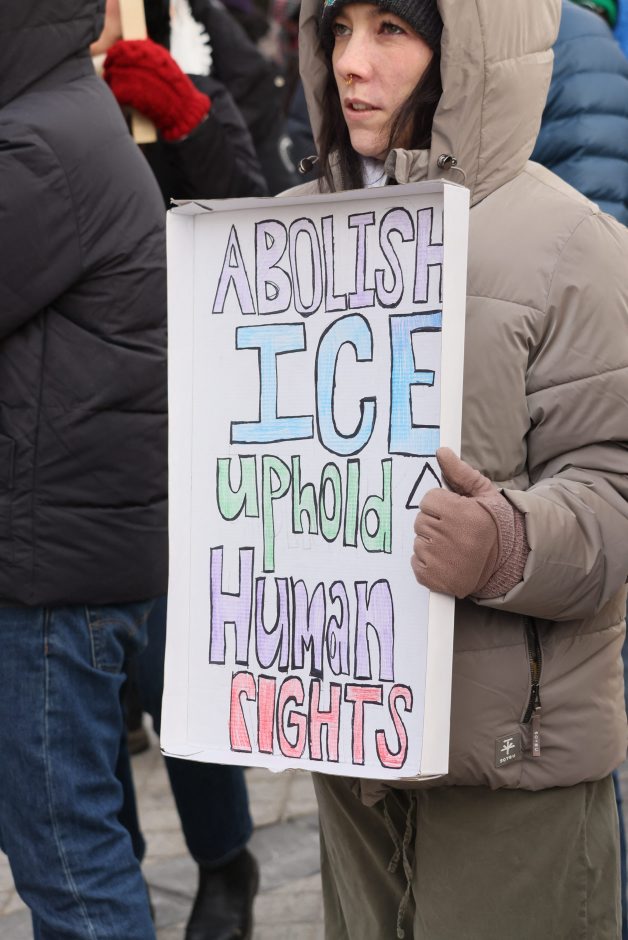 ABOLISH
ICE
uphold
Human
RIGHTS